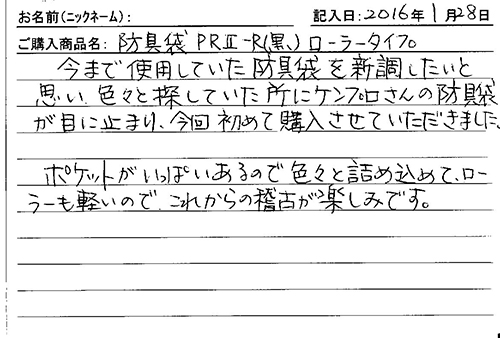 お名前(ニックネーム): 記入日:2016年1月28日
ご購入商品名: 防具袋 PRⅡ-R(黒) ローラータイプ
今まで使用していた防具袋を新調したいと
思い、色々と探していた所にケンプロさんの防具袋
が目に止まり、今回初めて購入させていただきました。
ポケットがいっぱいあるので色々と詰め込めて、ロー
ラーも軽いので、これからの稽古が楽しみです。